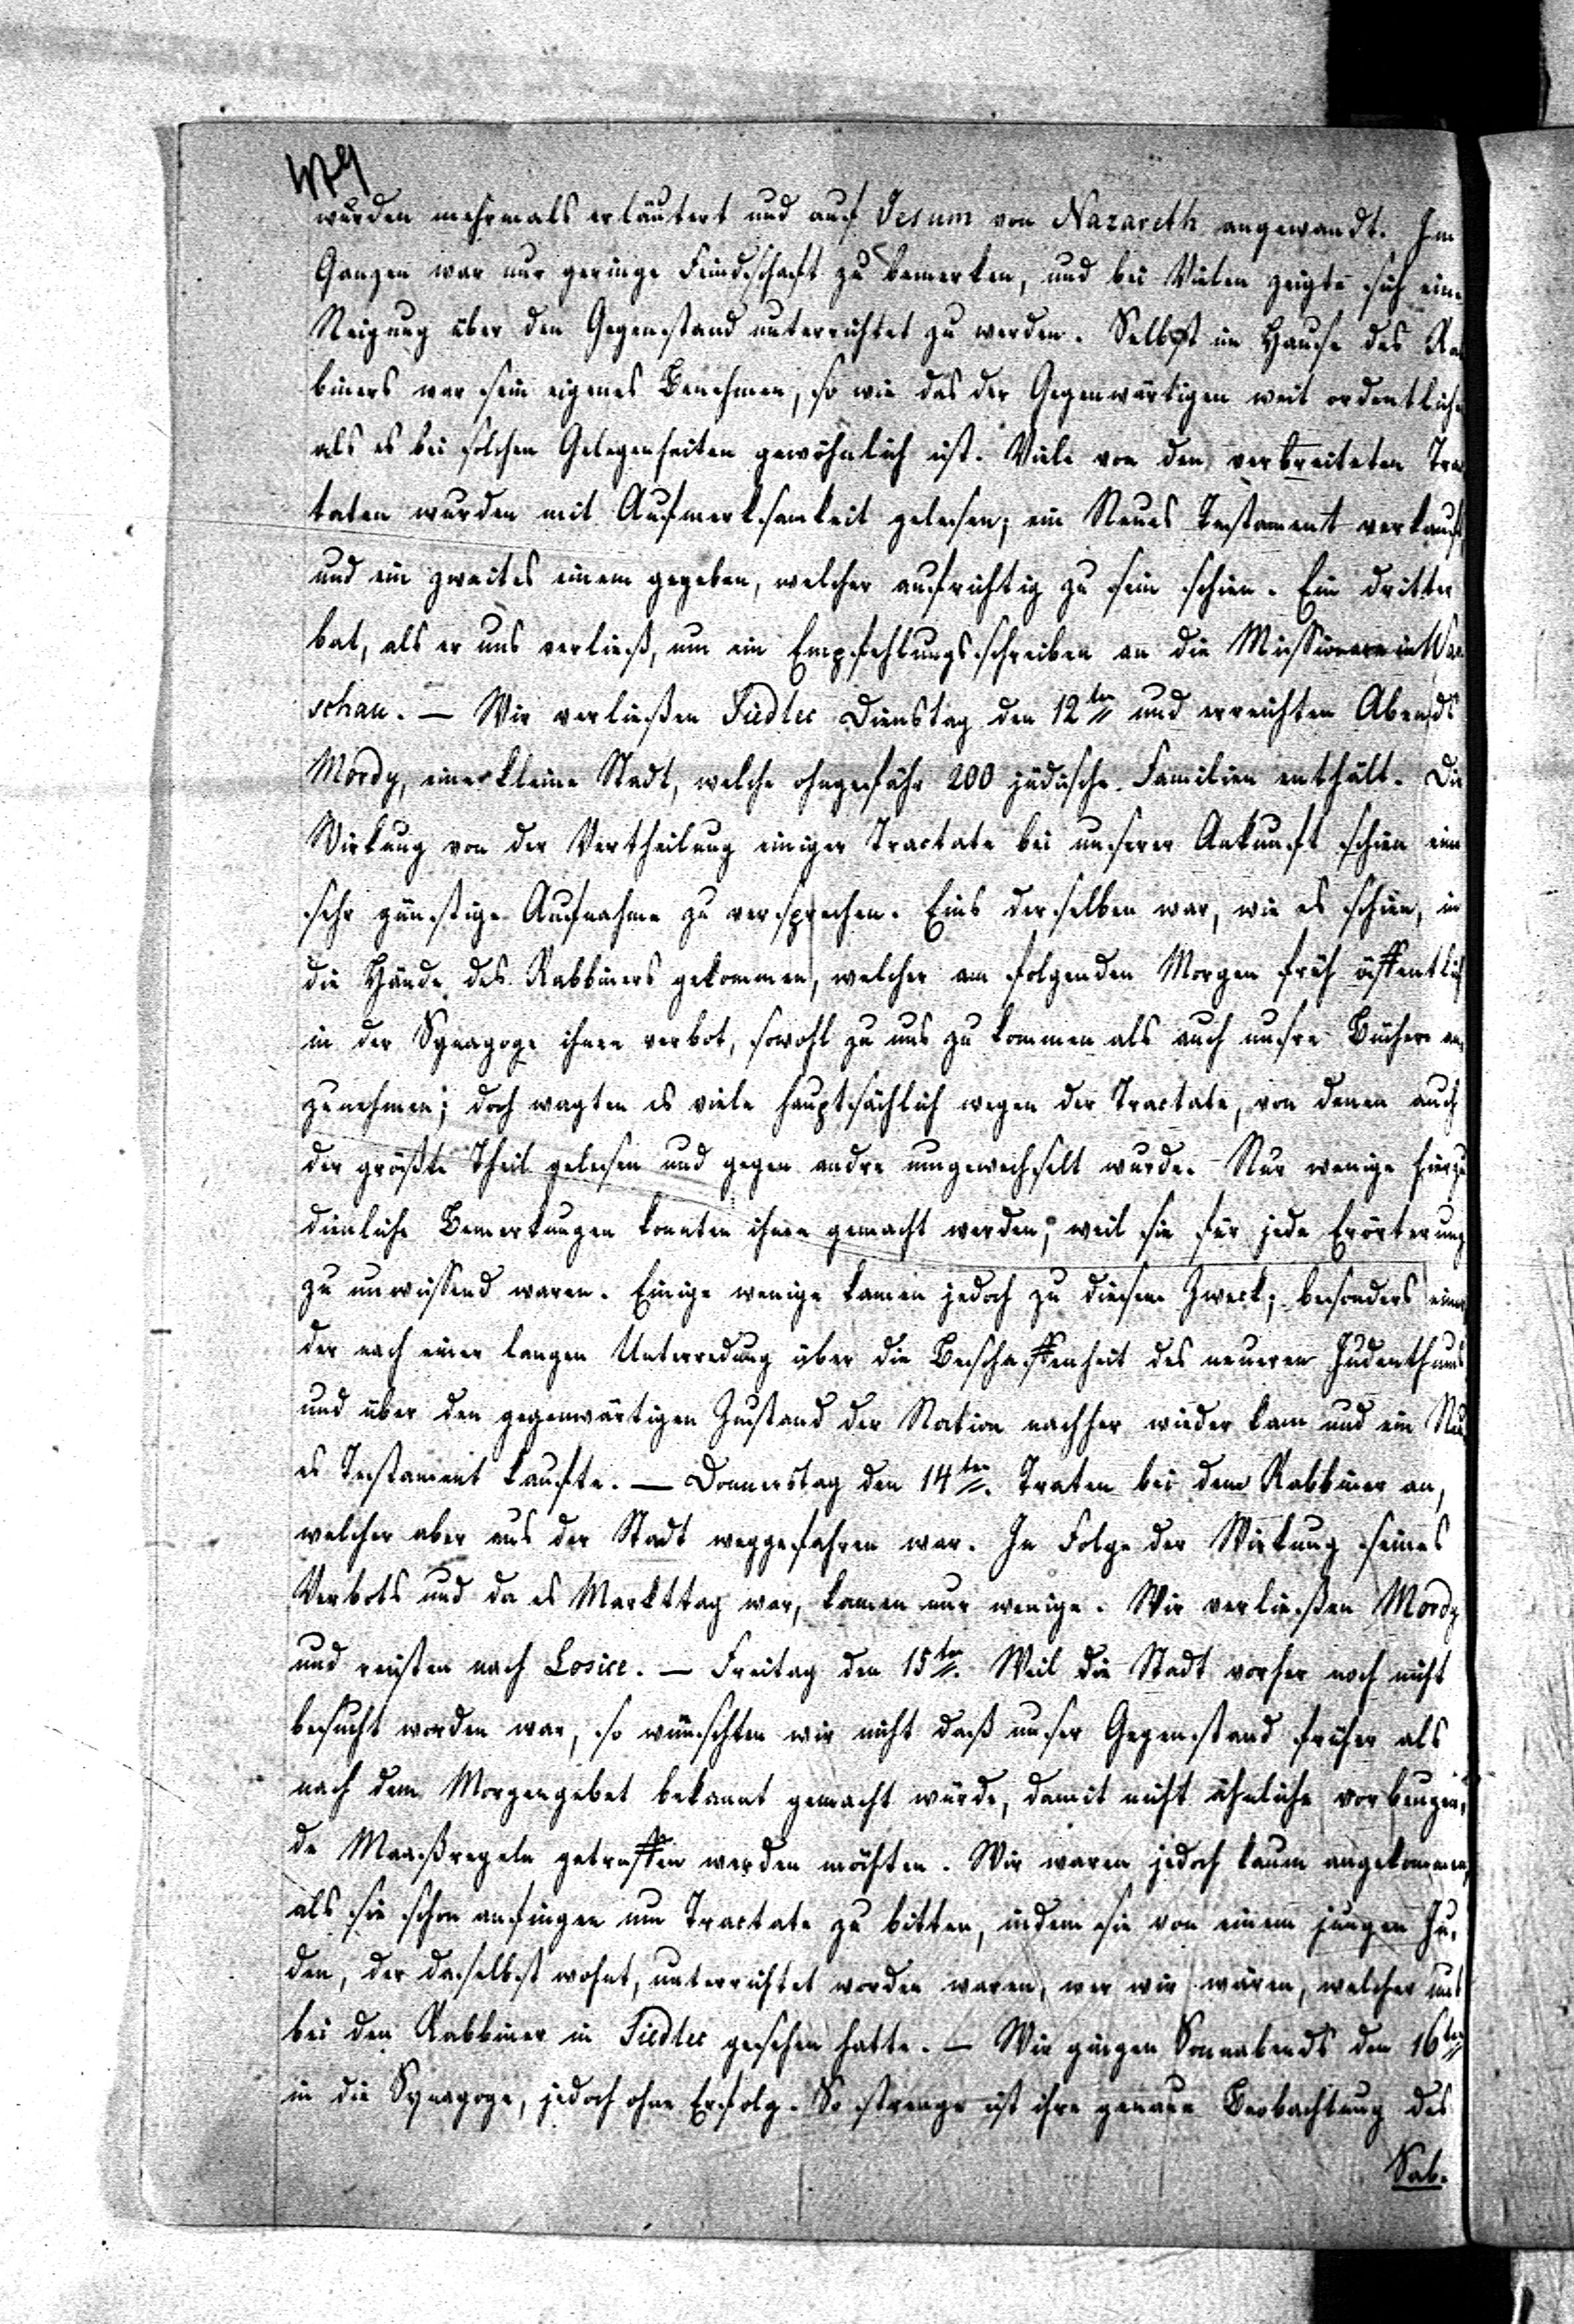 479
wurden mehrmals erläutert und auf Jesum von Nazareth angewandt. Im
Ganzen war nur geringe Feindschaft zu bemerken, und bei Vielen zeigte sich eine
Neigung über den Gegenstand unterrichtet zu werden. Selbst im Hause des Rab
biners war sein eigenes Benehmen, so wie das der Gegenwärtigen weit ordentlicher
als es bei solchen Gelegenheiten gewöhnlich ist. Viele von den verbreiteten Trac
taten wurden mit Aufmerksamkeit gelesen; ein Neues Testament verkauft,
und ein zweites einem gegeben, welcher aufrichtig zu sein schien. Ein dritter
bat, als er uns verließ, um ein Empfehlungsschreiben an die Missionare in War
schau. — Wir verließen Siedlec Dienstag den 12ten und erreichten Abends
Mordy, eine kleine Stadt, welche ohngefähr 200 jüdische Familien enthält. Die
Wirkung von der Vertheilung einiger Tractate bei unserer Ankunft schien eine
sehr günstige Aufnahme zu versprechen. Eins derselben war, wie es schien, in
die Hände des Rabbiners gekommen, welcher am folgenden Morgen früh öffentlich
in der Synagoge ihnen verbot, sowohl zu uns zu kommen als auch unsre Bücher an
zunehmen; doch wagten es viele hauptsächlich wegen der Tractate, von denen auch
der größte Theil gelesen und gegen andre umgewechselt wurde. Nur wenige hierzu
dienliche Bemerkungen konnten ihnen gemacht werden, weil sie für jede Erörterung
zu unwissend waren. Einige wenige kamen jedoch zu diesem Zweck; besonders einer,
der nach einer langen Unterredung über die Beschaffenheit des neueren Judenthums
und über den gegenwärtigen Zustand der Nation nachher wieder kam und ein Neu
es Testament kaufte. — Donnerstag den 14ten. Traten bei dem Rabbiner an,
welcher aber aus der Stadt weggefahren war. In Folge der Wirkung seines
Verbots und da es Markttag war, kamen nur wenige. Wir verließen Mordy
und reisten nach Losice. — Freitag den 15ten. Weil die Stadt vorher noch nicht
besucht worden war, so wünschten wir nicht daß unser Gegenstand früher als
nach dem Morgengebet bekannt gemacht würde, damit nicht ähnliche vorbeugen,
de Maaßregeln getroffen werden möchten. Wir waren jedoch kaum angekommen,
als sie schon anfingen um Tractate zu bitten, indem sie von einem jungen Ju,
den, der daselbst wohnt, unterrichtet worden waren, wer wir wären, welcher uns
bei den Rabbiner in Siedlec gesehen hatte. — Wir gingen Sonnabends den 16ten
in die Synagoge, jedoch ohne Erfolg. So strenge ist ihre genaue Beobachtung des
Sab.